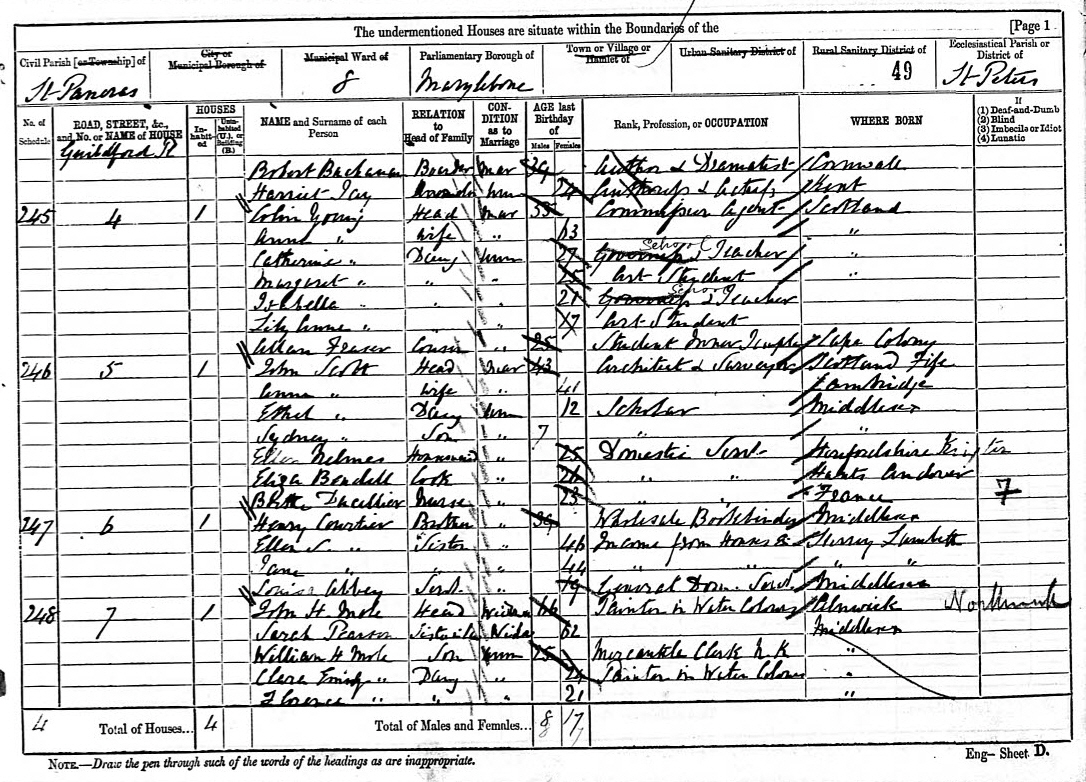 The undermentioned Houses are situate within the Boundaries of the [Page 1
Civil Parish [or Township] of City or Municipal Borough of Municipal Ward of Parliamentary Borough of Town or Village or Hamlet of Urban Sanitary District of Rural Sanitary District of Ecclesiastical Parish or District of
St Pancras 8 Marylebone 49 St Peters
No. of Schedule ROAD, STREET, &c., and No. or NAME of HOUSE HOUSES Inhabited Uninhabited (U.), or Building (B.) NAME and Surname of each Person RELATION to Head of Family CONDITION as to Marriage AGE last Birthday of Males Females Rank, Profession, or OCCUPATION WHERE BORN If (1) Deaf-and-Dumb (2) Blind (3) Imbecile or Idiot (4) Lunatic
Guildford Pl
Robert Buchanan Boarder Mar 39 Author & Dramatist Cornwall
Harriet Jay Unm 24 Authoress & Actress Kent
245 4 1 Colin Young Head Mar 55 Commission Agent Scotland
Anne " Wife " 53 "
Catherine " Daug Unm 27 Governess School Teacher "
Margaret " " " 25 Art Student
Isabella " " " 21 Governess School Teacher
Lily Anne " " " 17 Art Student
Allan Fraser Cousin " 25 Student Inner Temple Cape Colony
246 5 1 John Scott Head Mar 43 Architect & Surveyor Scotland Fife
Anna " Wife " 41 Cambridge
Ethel " Daug Unm 12 Scholar Middlesex
Sydney " Son " 7 " "
Ellen Helmes Housemaid " 25 Domestic Servt Herefordshire
Eliza Bendell Cook " 26 " " Hants Andover
Ducellier Nurse " 23 " " France 7
247 6 1 Henry Courtier Brother " 39 Wholesale Bookbinder Middlesex
Ellen S. " Sister " 46 Income from Houses &c Surrey Lambeth
Jane " " " 44 " " " "
Louisa Abbey Servt " 19 General Dom. Servt Middlesex
248 7 1 John H Mole Head Widower 66 Painter in Water Colours Alnwick Northumb
Sarah Pearson Sister in L Wida 62 Middlesex
William H Mole Son Unm 25 Mercantile Clerk "
Clara Emily " Daug " 24 Painter in Water Colours "
Florence " " " 21 "
4 Total of Houses... 4 Total of Males and Females... 8 17
NOTE.—Draw the pen through such of the words of the headings as are inappropriate. Eng— Sheet D.